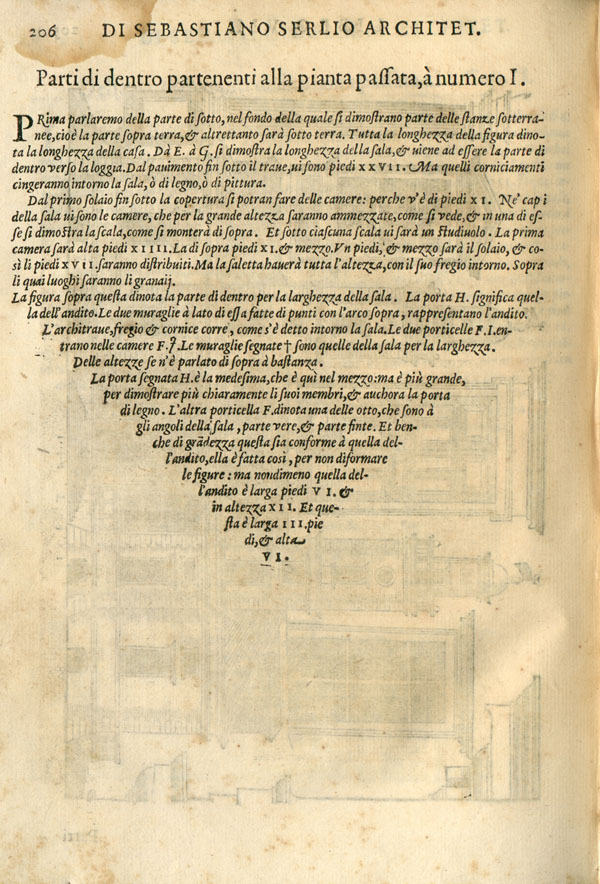 206
DI SEBASTIANO SERLIO ARCHITET.
Parti di dentro partenenti alla pianta passata, à numero I.
PRima parlaremo della parte di sotto, nel fondo della quale si dimostrano parte delle stanze sotterra-
nee, cioè la parte sopra terra, & altrettanto sarà sotto terra. Tutta la longhezza della figura dino-
ta la longhezza della casa. Dà E. à G. si dimostra la longhezza della sala, & uiene ad essere la parte di
dentro verso la loggia. Dal pauimento fin sotto il traue, ui sono piedi XXVII. Ma quelli corniciamenti
cingeranno intorno la sala, ò di legno, ò di pittura.
Dal primo solaio fin sotto la copertura si potran fare delle camere: perche v'è di piedi XI. Ne' capi
della sala ui sono le camere, che per la grande altezza saranno ammezzate, come si vede, & in una di es-
se si dimostra la scala, come si monterà di sopra. Et sotto ciascuna scala ui sarà un studiuolo. La prima
camera sarà alta piedi XIIII. La di sopra piedi XI. & mezzo. Vn piedi, e mezzo sarà il solaio, & co-
sì li piedi XVII. saranno distribuiti. Ma la saletta hauerà tutta l'altezza, con il suo fregio intorno. Sopra
li quai luoghi saranno li granaij.
La figura sopra questa dinota la parte di dentro per la larghezza della sala. La porta H. significa quel-
la dell'andito. Le due muraglie à lato di essa fatte di punti con l'arco sopra, rappresentano l'andito.
L'architraue, fregio & cornice corre, come s'è detto intorno la sala. Le due porticelle F. I. en-
trano nelle camere F. I. Le muraglie segnate † sono quelle della sala per la larghezza.
Delle altezze se n'è parlato di sopra à bastanza.
La porta segnata H. è la medesima, che è quì nel mezzo: ma è più grande,
per dimostrare più chiaramente li suoi membri, & anchora la porta
di legno. L'altra porticella F. dinota una delle otto, che sono à
gli angoli della sala, parte vere, & parte finte. Et ben-
che di grãdezza questa sia conforme à quella del-
l'andito, ella è fatta così, per non diformare
le figure: ma nondimeno quella del-
l'andito è larga piedi VI. &
in altezza XII. Et que-
sta è larga III. pie
di, & alta
VI.